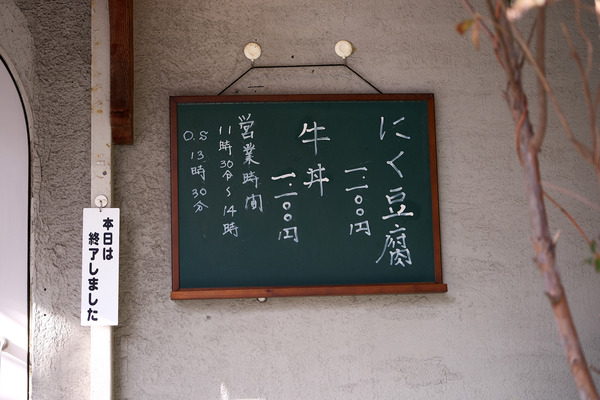 にく豆腐
一、一〇〇円
牛丼
一、一〇〇円
営業時間
11時30分〜14時
O.S 13時30分
本日は
終了しました